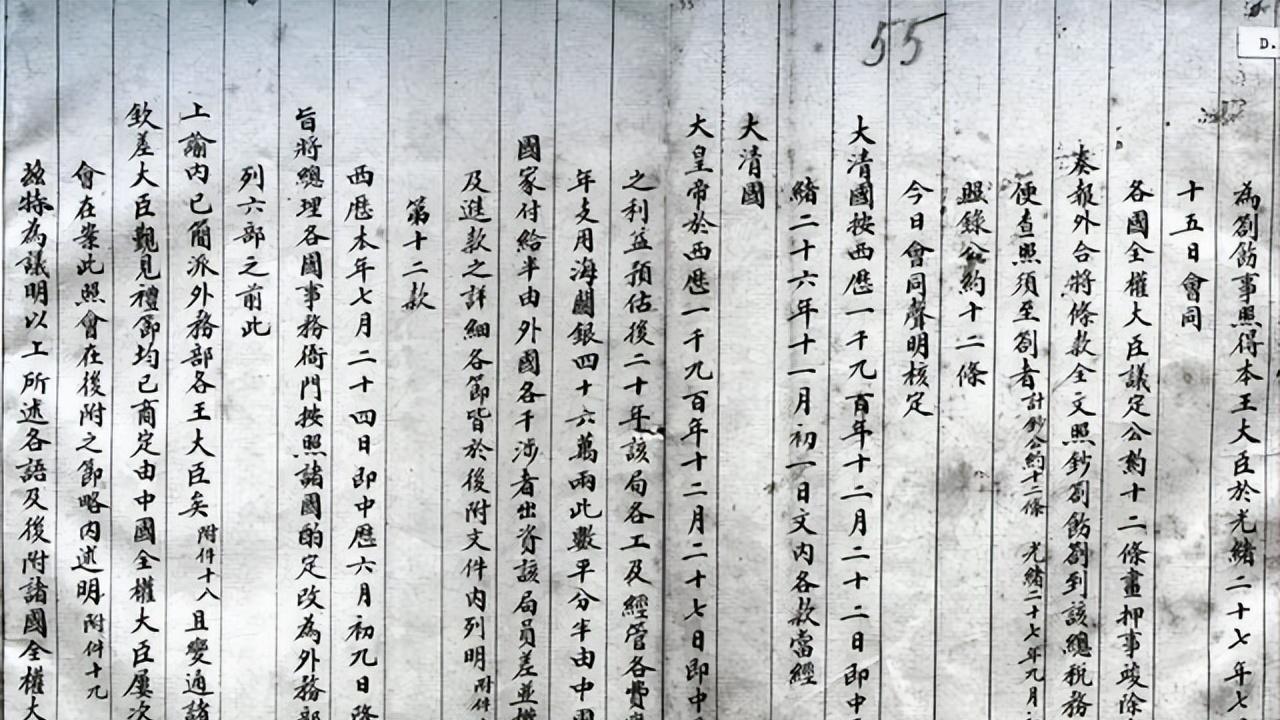 55
D.
為劄飭事照得本王大臣於光緒二十七年七
十五日會同
各國全權大臣議定公約十二條畫押事竣除
奏報外合將條款全文照鈔劄飭劄到該總稅務
便查照須至劄者 計鈔公約十二條 光緒二十七年九月
照錄公約十二條
今日會同聲明核定
大清國按西歷一千九百年十二月二十二日即中
緒二十六年十一月初一日文內各款當經
大清國
大皇帝於西歷一千九百年十二月二十七日即中
之利益預估後二十年該局各工及經營各費
年支用海關銀四十六萬兩此數平分半由中國
國家付給半由外國各干涉者出資該局員差並權
及進款之詳細各節皆於後附文件內列明 附件
第十二款
西歷本年七月二十四日即中歷六月初九日降
旨將總理各國事務衙門按照諸國酌定改為外務部
列六部之前此
上諭內已簡派外務部各王大臣矣 附件十八 且變通諸
欽差大臣覲見禮節均已商定由中國全權大臣屢次
會在案此照會在後附之節略內述明 附件十九
茲特為議明以上所述各語及後附諸國全權大